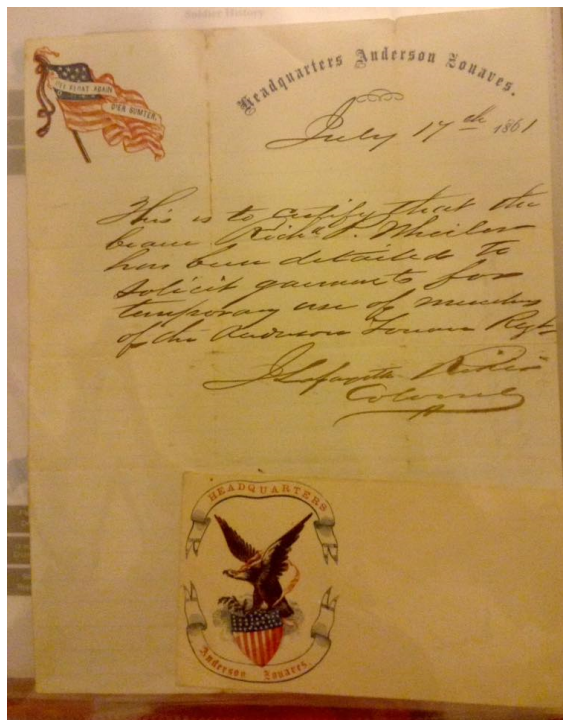 Soldier History
WE'LL FLOAT AGAIN
O'ER SUMTER.
Headquarters Anderson Zouaves.
July 17th 1861
This is to certify that the
bearer Richd P. Wheeler
has been detailed to
solicit garments for
temporary use of members
of the Anderson Zouave Regt
J Lafayette Riker
Colonel
HEADQUARTERS
Anderson Zouaves.